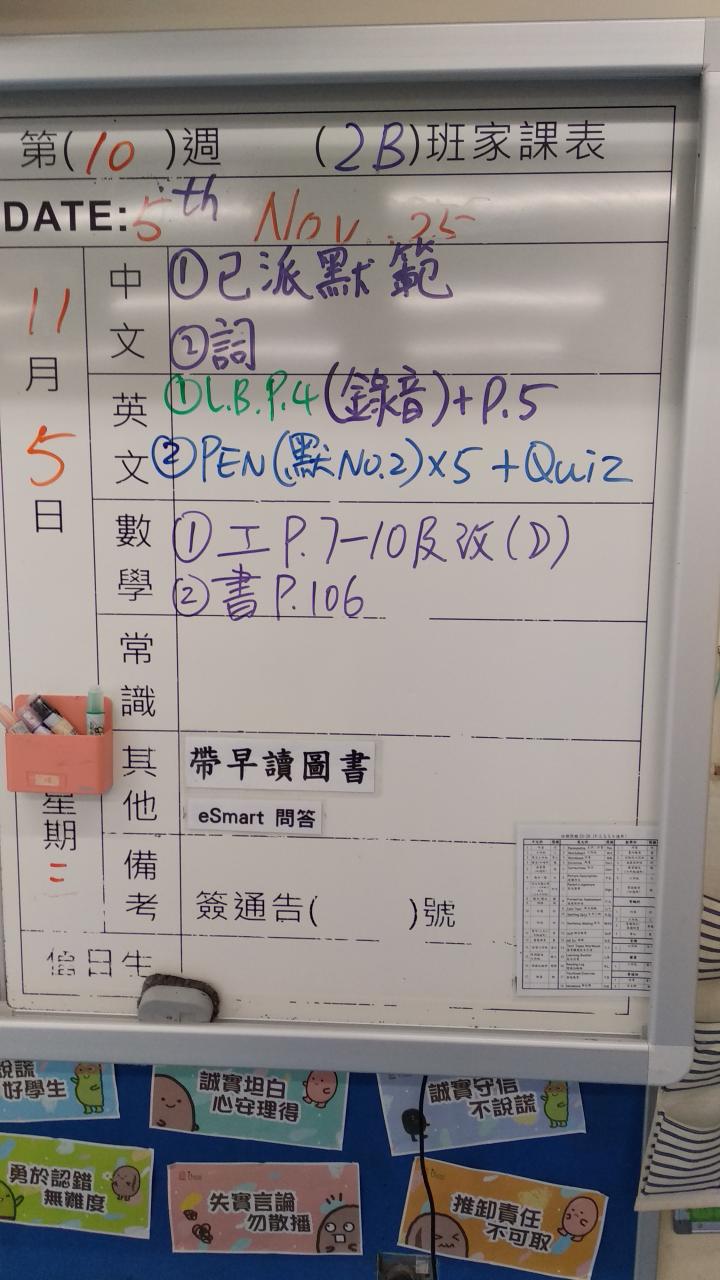 第(10)週 (2B)班家課表
DATE: 5th Nov. 25
11月5日
星期二
中文
①已派默範
②詞
英文
①L.B.P.4(錄音)+P.5
②PEN(默NO.2)×5+Quiz
數學
①工P.7-10及改(D)
②書P.106
常識
其他
帶早讀圖書
eSmart 問答
備考
簽通告( )號
值日生
說謊
好學生
誠實坦白
心安理得
誠實守信
不說謊
勇於認錯
無難度
失實言論
勿散播
推卸責任
不可取